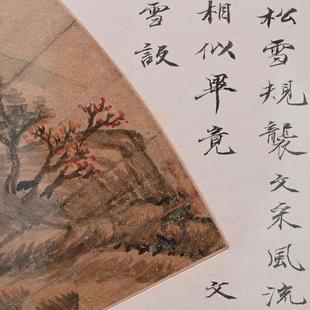 松雪規襲文采風流
相似畢竟 文
雪設